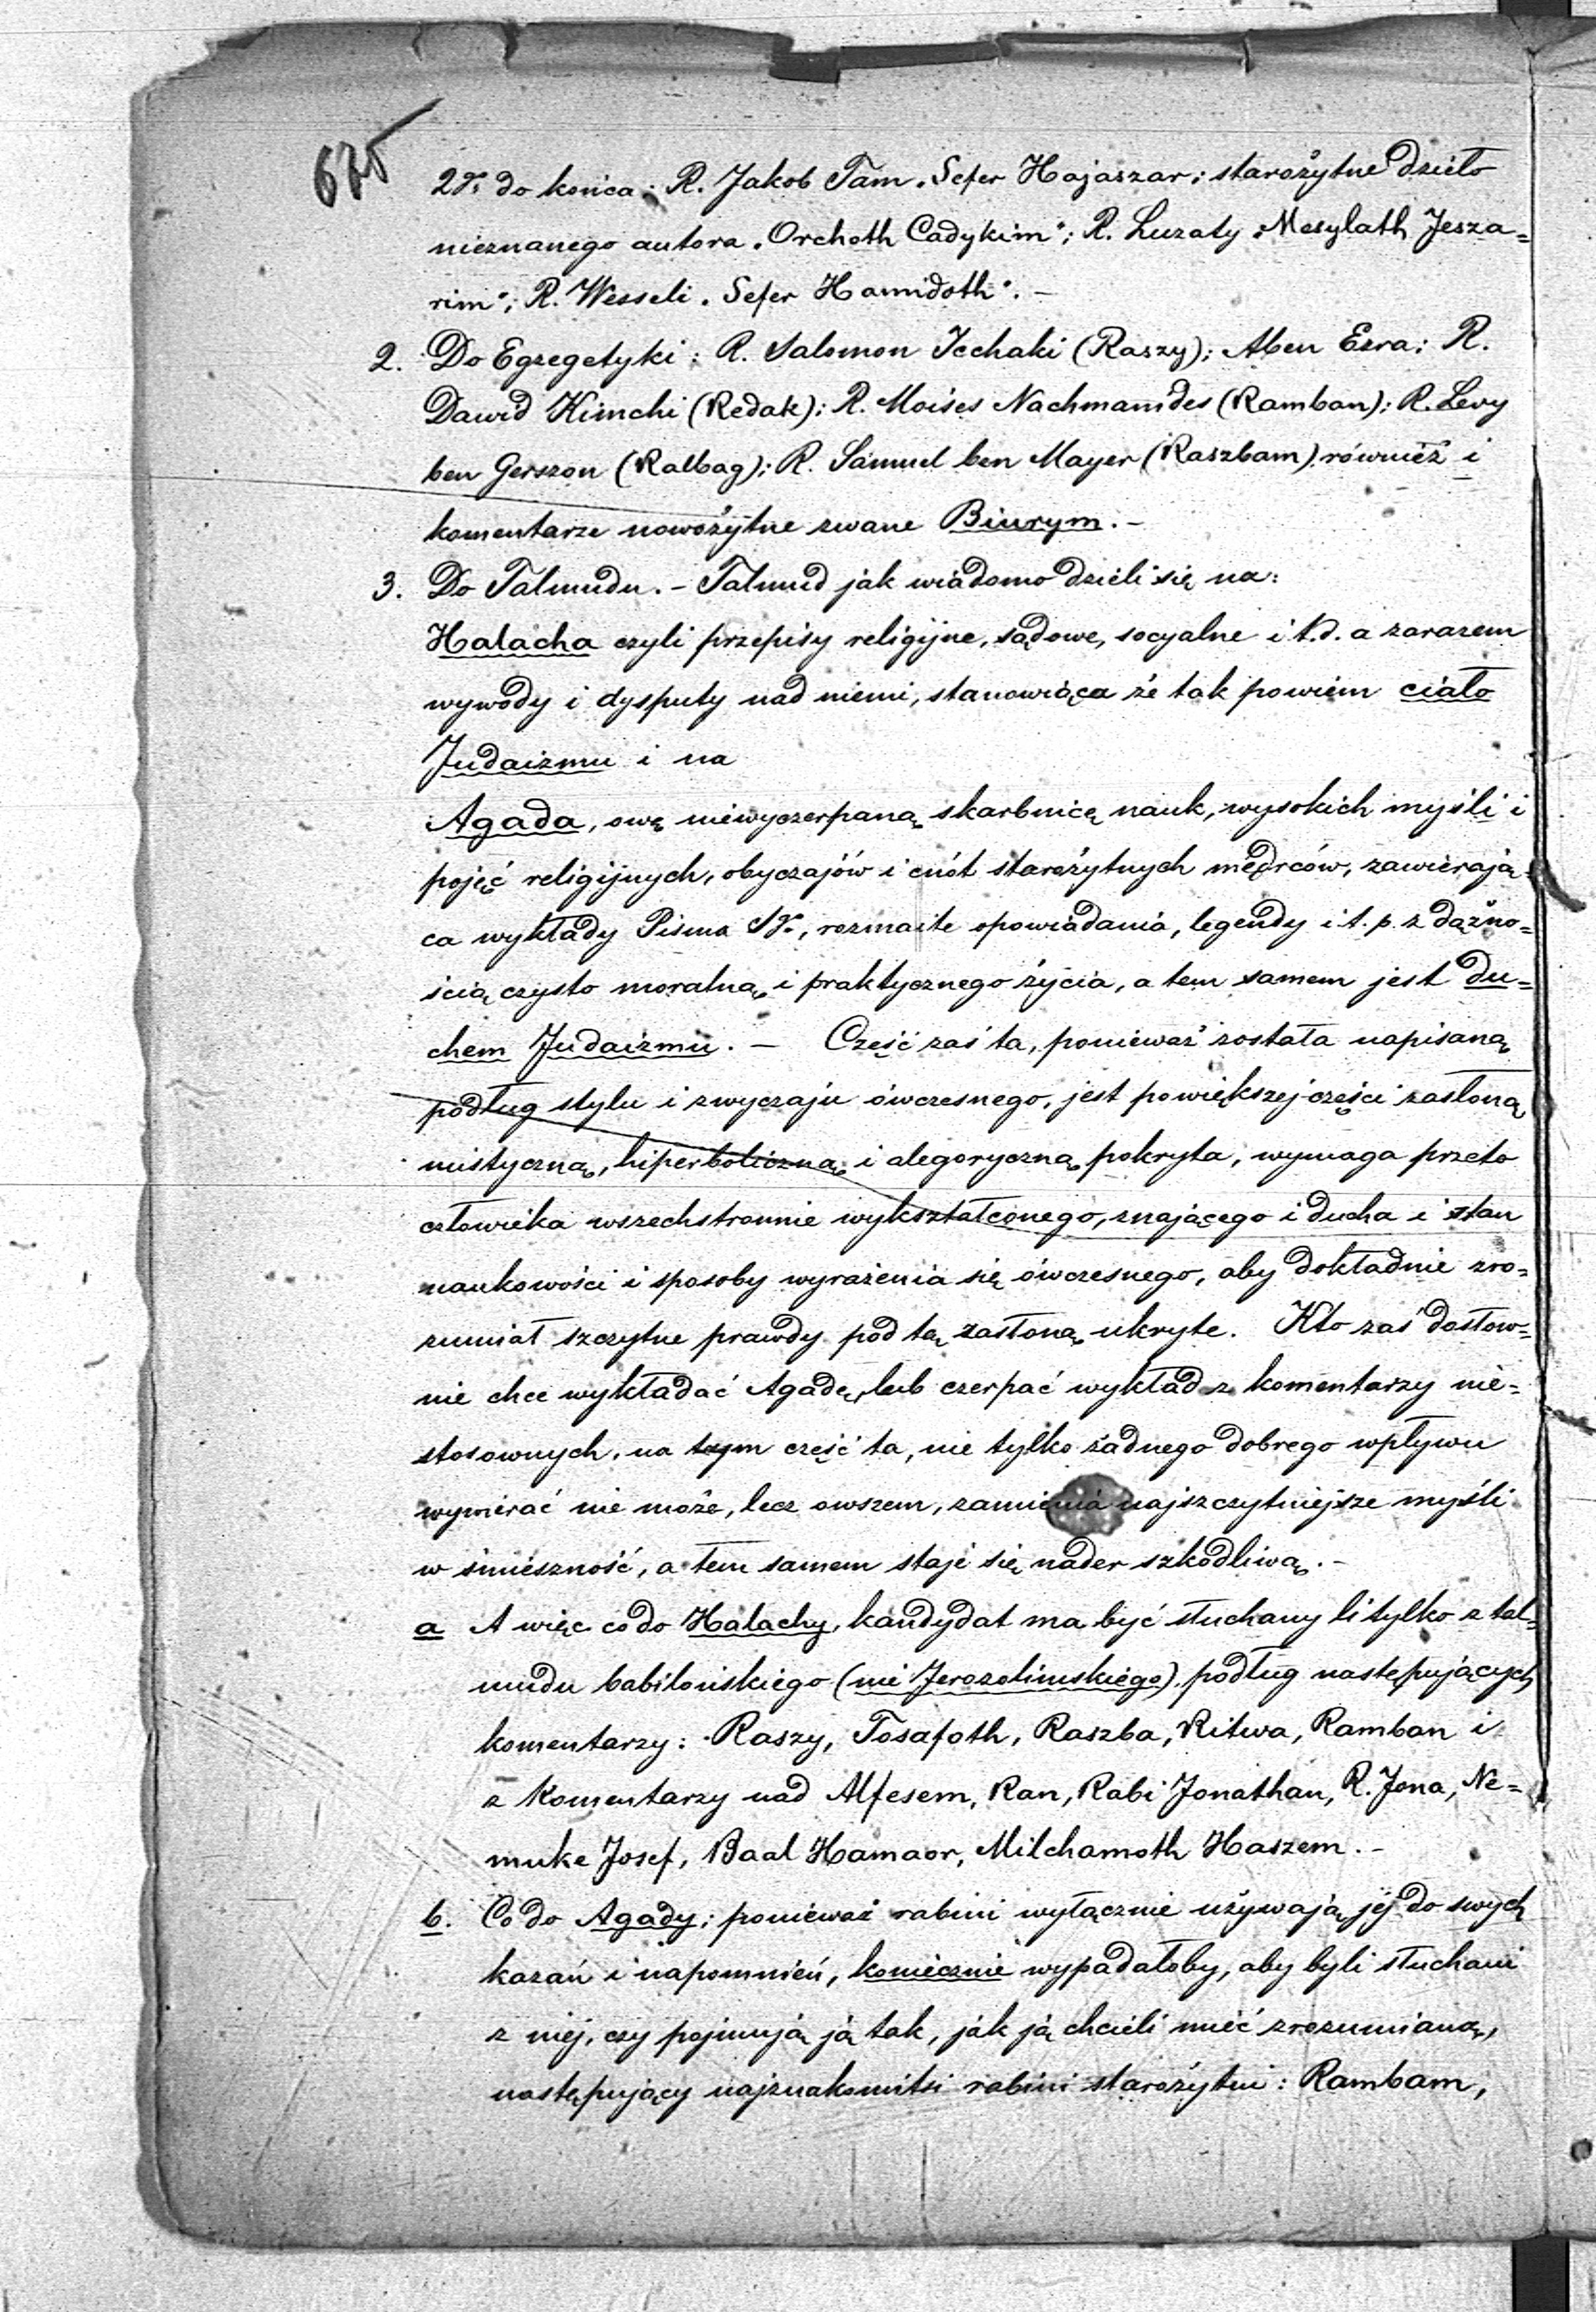 675
2go do końca: R. Jakob Tam „Sefer Hajaszar; starożytne dzieło
nieznanego autora „Orchoth Cadykim"; R. Luzaty „Mesylath Jesza=
rim"; R. Wesseli „Sefer Hamidoth". —
2. Do Egzegetyki: R. Salomon Icchaki (Raszy); Aben Ezra; R.
Dawid Kimchi (Redak); R. Moises Nachmanides (Ramban); R. Levy
ben Gerszon (Ralbag); R. Samuel ben Mayer (Raszbam) również i
komentarze nowożytne zwane Biurym. —
3. Do Talmudu. — Talmud jak wiadomo dzieli się na:
Halacha czyli przepisy religijne, sądowe, socyalne i t.d. a zarazem
wywody i dysputy nad niemi, stanowiąca że tak powiem ciało
Judaizmu i na
Agada, owę niewyczerpaną skarbnicę nauk, wysokich myśli i
pojęć religijnych, obyczajów i cnót starożytnych mędrców, zawierają=
ca wykłady Pisma Sgo, rozmaite opowiadania, legendy i t.p. z dążno=
ścią czysto moralną i praktycznego życia, a tem samem jest du=
chem Judaizmu. — Część zaś ta, ponieważ została napisaną
podług stylu i zwyczaju ówczesnego, jest powiększej części zasłoną
mistyczną, hiperboliczną i alegoryczną pokryta, wymaga przeto
człowieka wszechstronnie wykształconego, znającego i ducha i stan
naukowości i sposoby wyrażenia się ówczesnego, aby dokładnie zro=
zumiał szczytne prawdy pod tą zasłoną ukryte. Kto zaś dosłow=
nie chce wykładać Agadę, lub czerpać wykład z komentarzy nie=
stosownych, na tym część ta, nie tylko żadnego dobrego wpływu
wywierać nie może, lecz owszem, zamienia najszczytniejsze myśli
w śmieszność, a tem samem staje się nader szkodliwą. —
a A więc co do Halachy, kandydat ma być słuchany li tylko z tal=
mudu babilońskiego (nie Jerozolimskiego) podług następujących
komentarzy: Raszy, Tosafoth, Raszba, Ritwa, Ramban i
z Komentarzy nad Alfesem, Ran, Rabi Jonathan, R. Jona, Ne=
muke Josef, Baal Hamaor, Milchamoth Haszem. —
b. Co do Agady; ponieważ rabini wyłącznie używają jej do swych
kazań i napomnień, koniecznie wypadałoby, aby byli słuchani
z niej, czy pojmują ją tak, jak ją chcieli mieć zrozumianą,
następujący najznakomitsi rabini starożytni: Rambam,